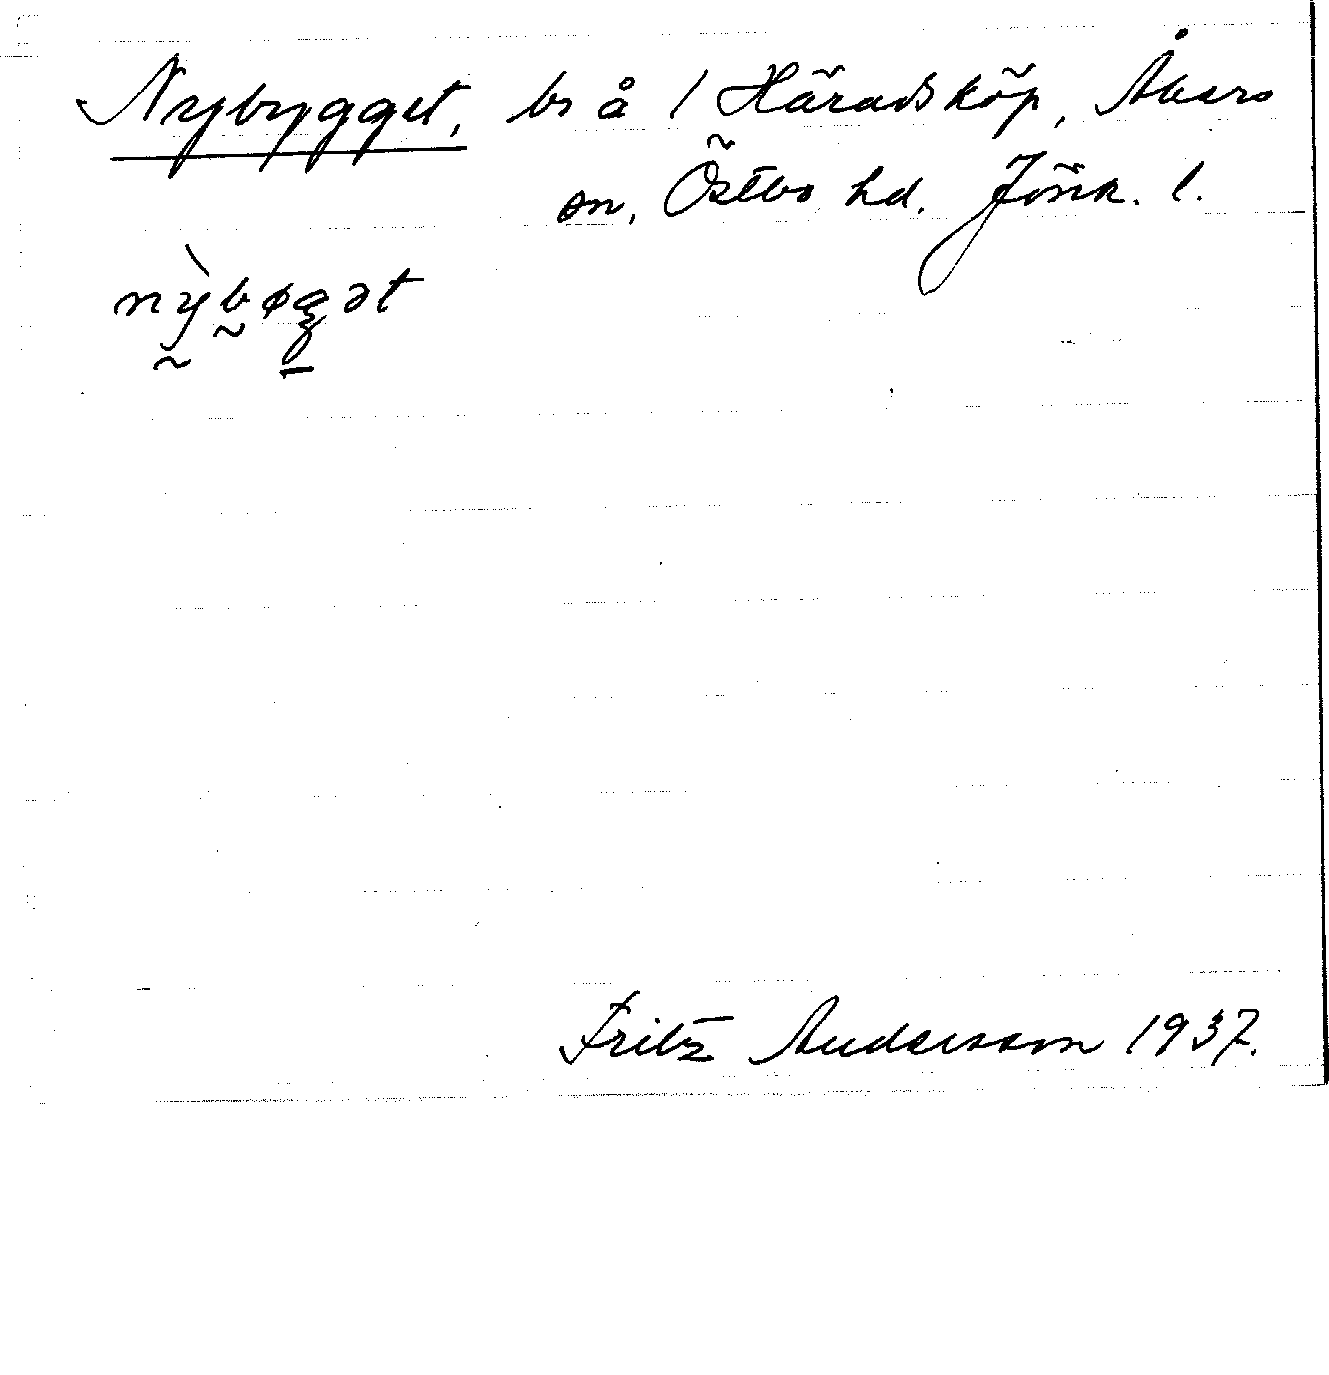 Nybygget, bs å / Häradsköp, Åkers
sn, Östbo hd. Jönk. l.
nỳbøgət
Fritz Andersson 1937.